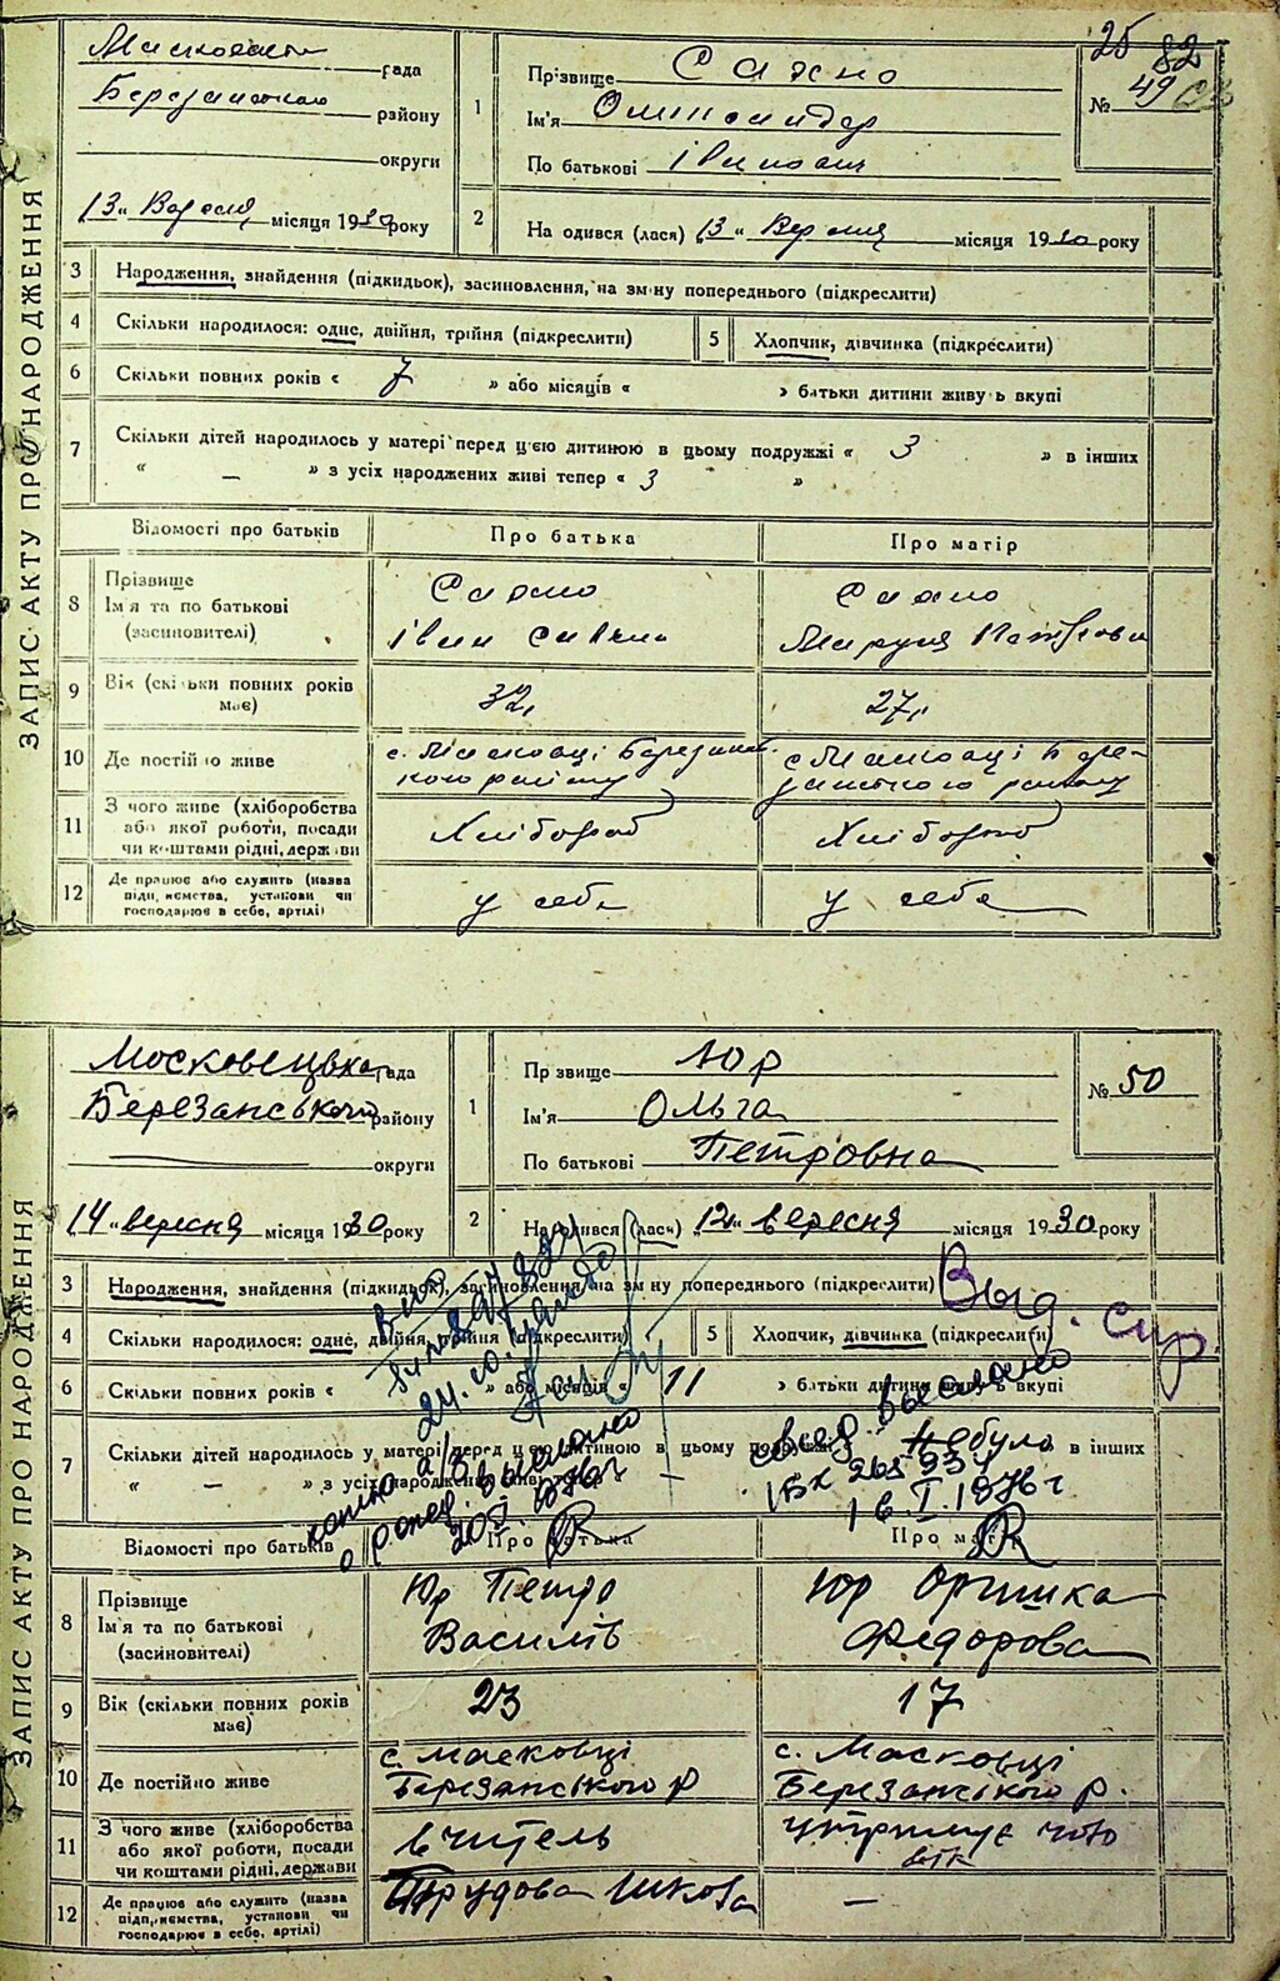 25 82
ЗАПИС АКТУ ПРО НАРОДЖЕННЯ
рада
району
округи
13 „ Вересня місяця 1930 року
1
Прізвище Сахно
Ім'я Олександер
По батькові Іванович
№ 49
2
Народився (лася) 13 „ Вересня місяця 1930 року
3 Народження, знайдення (підкидьок), засиновлення, на зміну попереднього (підкреслити)
4 Скільки народилося: одне, двійня, трійня (підкреслити)
5 Хлопчик, дівчинка (підкреслити)
6 Скільки повних років « 7 » або місяців « » батьки дитини живуть вкупі
7 Скільки дітей народилось у матері перед цією дитиною в цьому подружжі « 3 » в інших
« — » з усіх народжених живі тепер « 3 »
Відомості про батьків Про батька Про матір
8 Прізвище
Ім'я та по батькові
(засиновителі)
Сахно
Іван
Сахно
Маруся Петрова
9 Вік (скільки повних років
має)
32,
27,
10 Де постійно живе
с. Масковці Березанс.
кого району
с Масковці Бере-
занського району
11 З чого живе (хліборобства
або якої роботи, посади
чи коштами рідні, держави
Хлібороб
Хлібороб
12 Де працює або служить (назва
підприємства, установи чи
господарює в себе, артілі)
у себе
у себе
ЗАПИС АКТУ ПРО НАРОДЖЕННЯ
Московецька рада
Березанського району
округи
14 „ вересня місяця 1930 року
1
Прізвище Юр
Ім'я Ольга
По батькові Петровна
№ 50
2
Народився (лася) 12 „ вересня місяця 1930 року
3 Народження, знайдення (підкидьок), засиновлення, на зміну попереднього (підкреслити)
Выд. спр.
4 Скільки народилося: одне, двійня, трійня (підкреслити)
5 Хлопчик, дівчинка (підкреслити)
6 Скільки повних років « » або місяців « 11 » батьки дитини живуть вкупі
7 Скільки дітей народилось у матері перед цією дитиною в цьому подружжі « не було в інших
« — » з усіх народжених живі тепер « —
копия а/з
о рожд. выслано
20.I.1976г
свид. выслано
IБК 265931
16.I.1976г
Відомості про батьків Про батька Про матір
8 Прізвище
Ім'я та по батькові
(засиновителі)
Юр Петро
Василів
Юр Оришка
Федорова
9 Вік (скільки повних років
має)
23
17
10 Де постійно живе
с. Масковці
Березанського р
с. Масковці
Березанського р.
11 З чого живе (хліборобства
або якої роботи, посади
чи коштами рідні, держави
вчитель
утримує чоло
вік
12 Де працює або служить (назва
підприємства, установи чи
господарює в себе, артілі)
Трудова школа
—